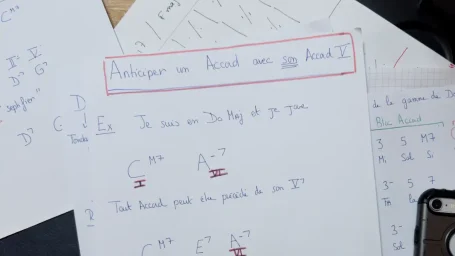 Anticiper un Accord avec son Accord V
Ex Je suis en Do Maj et je joue
C M7 A-7
I VI
Tout Accord peut être précédé de son V7
C M7 E7 A-7
VI
II V
D7 G7
C D
D7
de la gamme de Do
Bla Accord
3 5 M7
Mi Sol Si
3- 5 7
3-
Sol